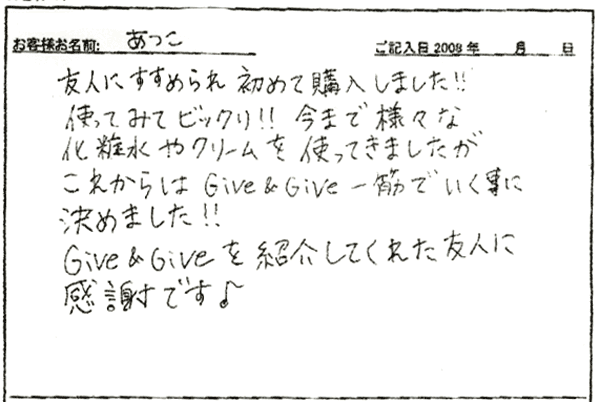 お客様お名前: あつこ ご記入日 2008 年 月 日
友人にすすめられ 初めて購入しました!!
使ってみてビックリ!! 今まで様々な
化粧水やクリームを使ってきましたが
これからは Give & Give 一筋でいく事に
決めました!!
Give & Give を紹介してくれた友人に
感謝です♪